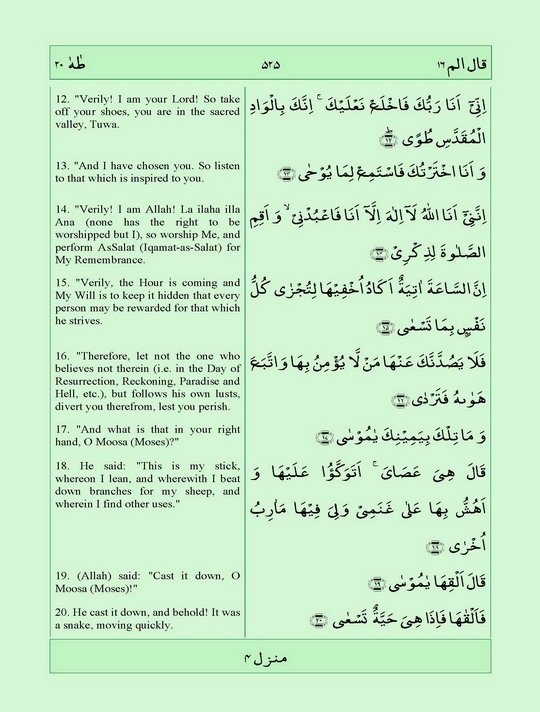 طٰهٰ ۲۰
۵۲۵
قال الم ۱۶
12. "Verily! I am your Lord! So take
off your shoes, you are in the sacred
valley, Tuwa.
اِنِّیْۤ اَنَا رَبُّكَ فَاخْلَعْ نَعْلَیْكَ ۚ اِنَّكَ بِالْوَادِ
الْمُقَدَّسِ طُوًی ﴿۱۲﴾
13. "And I have chosen you. So listen
to that which is inspired to you.
وَ اَنَا اخْتَرْتُكَ فَاسْتَمِعْ لِمَا یُوْحٰی ﴿۱۳﴾
14. "Verily! I am Allah! La ilaha illa
Ana (none has the right to be
worshipped but I), so worship Me, and
perform AsSalat (Iqamat-as-Salat) for
My Remembrance.
اِنَّنِیْۤ اَنَا اللّٰهُ لَاۤ اِلٰهَ اِلَّاۤ اَنَا فَاعْبُدْنِیْ ۙ وَ اَقِمِ
الصَّلٰوةَ لِذِكْرِیْ ﴿۱۴﴾
15. "Verily, the Hour is coming and
My Will is to keep it hidden that every
person may be rewarded for that which
he strives.
اِنَّ السَّاعَةَ اٰتِیَةٌ اَكَادُ اُخْفِیْهَا لِتُجْزٰی كُلُّ
نَفْسٍۭ بِمَا تَسْعٰی ﴿۱۵﴾
16. "Therefore, let not the one who
believes not therein (i.e. in the Day of
Resurrection, Reckoning, Paradise and
Hell, etc.), but follows his own lusts,
divert you therefrom, lest you perish.
فَلَا یَصُدَّنَّكَ عَنْهَا مَنْ لَّا یُؤْمِنُ بِهَا وَ اتَّبَعَ
هَوٰىهُ فَتَرْدٰی ﴿۱۶﴾
17. "And what is that in your right
hand, O Moosa (Moses)?"
وَ مَا تِلْكَ بِیَمِیْنِكَ یٰمُوْسٰی ﴿۱۷﴾
18. He said: "This is my stick,
whereon I lean, and wherewith I beat
down branches for my sheep, and
wherein I find other uses."
قَالَ هِیَ عَصَایَ ۚ اَتَوَكَّؤُا عَلَیْهَا وَ
اَهُشُّ بِهَا عَلٰی غَنَمِیْ وَلِیَ فِیْهَا مَاٰرِبُ
اُخْرٰی ﴿۱۸﴾
19. (Allah) said: "Cast it down, O
Moosa (Moses)!"
قَالَ اَلْقِهَا یٰمُوْسٰی ﴿۱۹﴾
20. He cast it down, and behold! It was
a snake, moving quickly.
فَاَلْقٰىهَا فَاِذَا هِیَ حَیَّةٌ تَسْعٰی ﴿۲۰﴾
منزل ۴